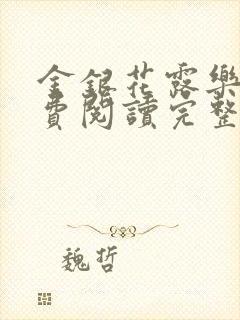 金銀花露樂
費閱讀完整
魏哲